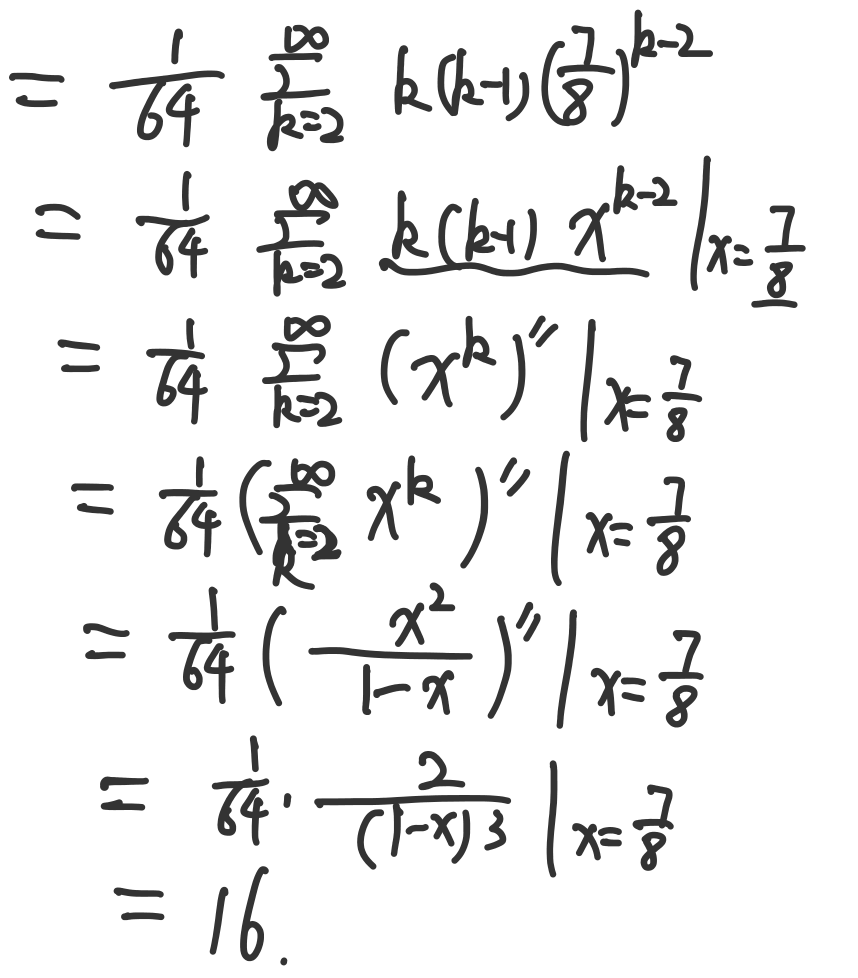 = \frac{1}{64} \sum_{k=2}^{\infty} k(k-1)\left(\frac{7}{8}\right)^{k-2}
= \frac{1}{64} \sum_{k=2}^{\infty} \underline{k(k-1) x^{k-2}} \Big|_{x=\underline{\frac{7}{8}}}
= \frac{1}{64} \sum_{k=2}^{\infty} (x^k)'' \Big|_{x=\frac{7}{8}}
= \frac{1}{64} \left(\sum_{k=2}^{\infty} x^k\right)'' \Big|_{x=\frac{7}{8}}
= \frac{1}{64} \left(\frac{x^2}{1-x}\right)'' \Big|_{x=\frac{7}{8}}
= \frac{1}{64} \cdot \frac{2}{(1-x)^3} \Big|_{x=\frac{7}{8}}
= 16.